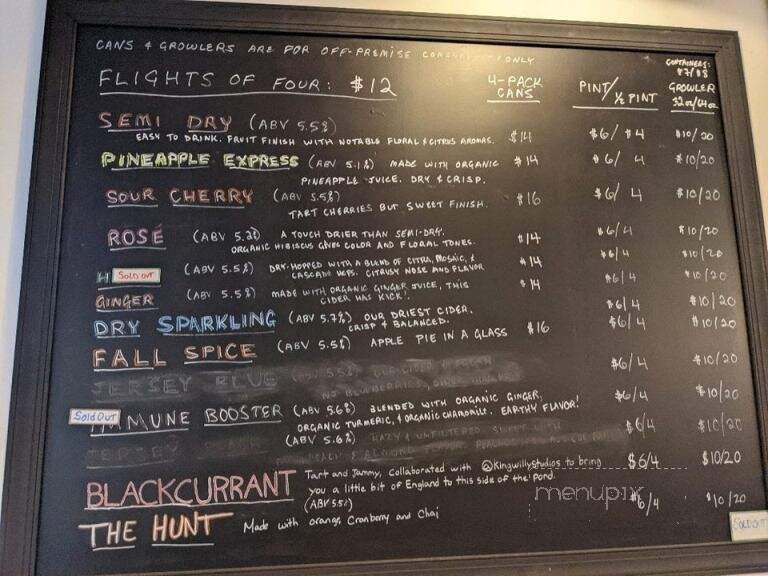 CANS & GROWLERS ARE FOR OFF-PREMISE ONLY
FLIGHTS OF FOUR: $12
4-PACK CANS
PINT/ ½ PINT
CONTAINERS: $7/$8
GROWLER 32oz/64oz
SEMI DRY (ABV 5.5%)
EASY TO DRINK. FRUIT FINISH WITH NOTABLE FLORAL & CITRUS AROMAS. $14 $6/$4 $10/20
PINEAPPLE EXPRESS (ABV 5.1%) MADE WITH ORGANIC $14 $6/ 4 $10/20
PINEAPPLE JUICE. DRY & CRISP.
SOUR CHERRY (ABV 5.5%) $16 $6/ 4 $10/20
TART CHERRIES BUT SWEET FINISH.
ROSÉ (ABV 5.2%) A TOUCH DRIER THAN SEMI-DRY. $14 $6/4 $10/20
ORGANIC HIBISCUS GIVES COLOR AND FLORAL TONES.
H SOLD OUT (ABV 5.5%) DRY-HOPPED WITH A BLEND OF CITRA, MOSAIC, & $14 $6/4 $10/20
CASCADE HOPS. CITRUSY NOSE AND FLAVOR
GINGER (ABV 5.5%) MADE WITH ORGANIC GINGER JUICE, THIS $14 $6/4 $10/20
CIDER HAS KICK!
DRY SPARKLING (ABV 5.7%) OUR DRIEST CIDER. $6/4 $10/20
CRISP & BALANCED.
FALL SPICE (ABV 5.5%) APPLE PIE IN A GLASS $16 $6/4 $10/20
JERSEY BLUE $6/4 $10/20
Sold Out IMMUNE BOOSTER (ABV 5.6%) BLENDED WITH ORGANIC GINGER, $6/4 $10/20
ORGANIC TURMERIC, & ORGANIC CHAMOMILE. EARTHY FLAVOR!
JERSEY (ABV 5.6%) HAZY & UNFILTERED. SWEET WITH $6/4 $10/20
BLACKCURRANT Tart and Jammy, collaborated with @Kingwillystudios to bring $6/4 $10/20
you a little bit of England to this side of the pond.
(ABV 5.5%)
THE HUNT Made with orange, Cranberry and Chai $6/4 $10/20
SOLD OUT
menupix